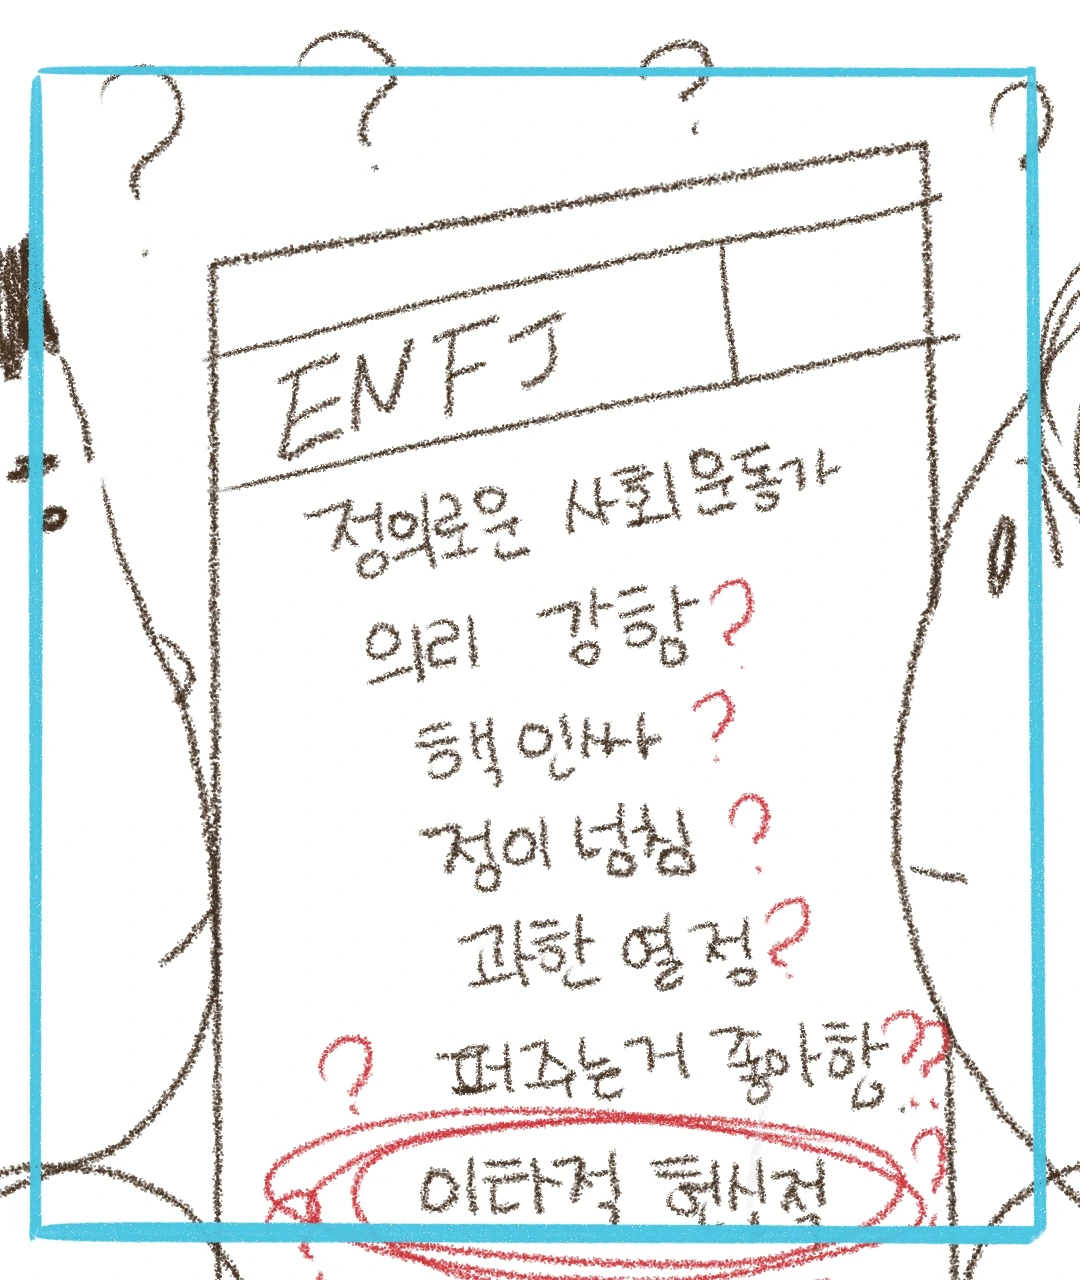 ? ? ? ?
ENFJ
정의로운 사회운동가
의리 강함?
핵인싸 ?
정이 넘침 ?
과한 열정?
? 퍼주는거 좋아함??
이타적 헌신적 ?
?